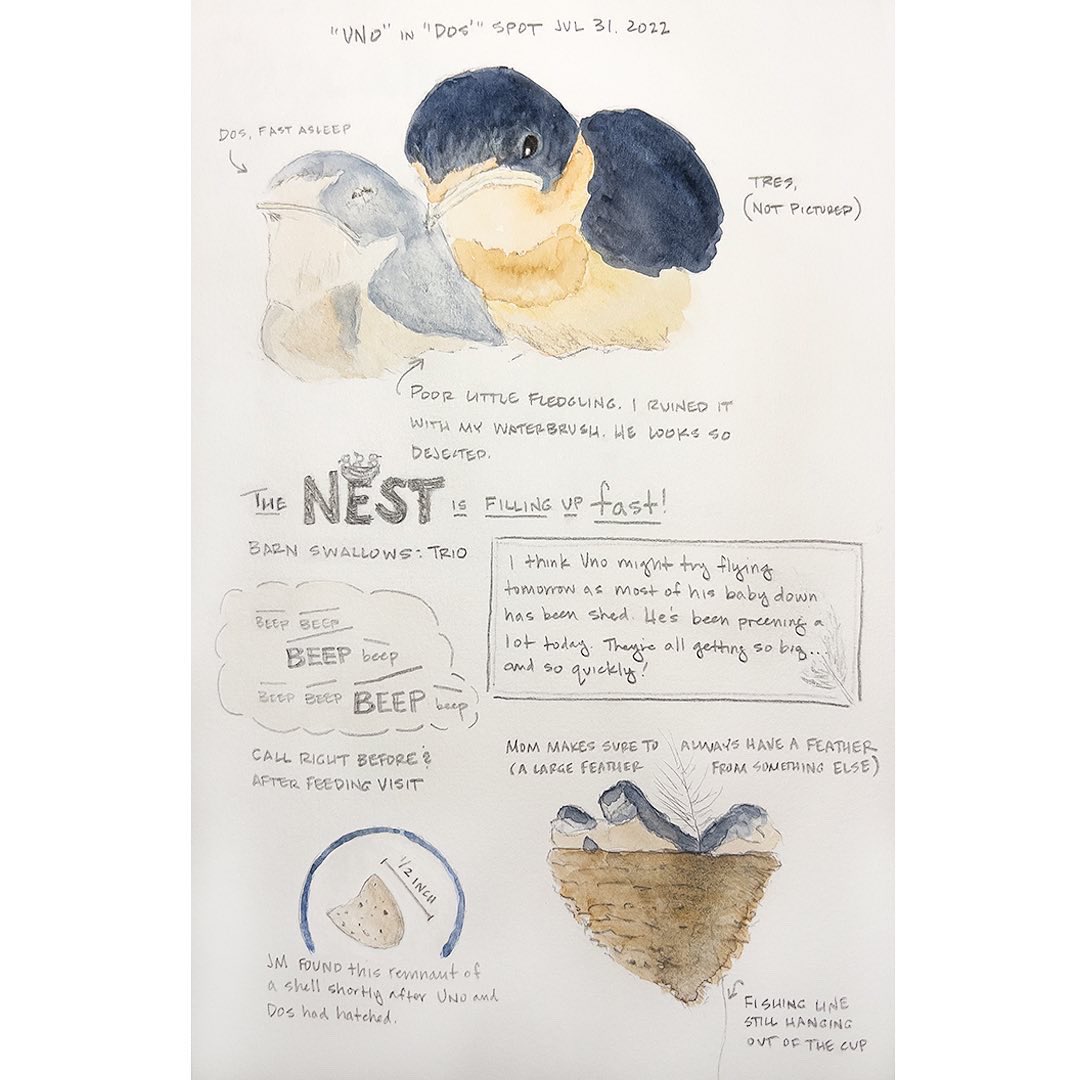 "UNO" IN "DOS'" SPOT JUL 31. 2022
DOS, FAST ASLEEP
TRES,
(NOT PICTURED)
POOR LITTLE FLEDGLING. I RUINED IT
WITH MY WATERBRUSH. HE LOOKS SO
DEJECTED.
THE NEST IS FILLING UP fast!
BARN SWALLOWS: TRIO
I think Uno might try flying
tomorrow as most of his baby down
has been shed. He's been preening a
lot today. They're all getting so big...
and so quickly!
BEEP BEEP
BEEP beep
BEEP BEEP BEEP beep
CALL RIGHT BEFORE &
AFTER FEEDING VISIT
MOM MAKES SURE TO ALWAYS HAVE A FEATHER
(A LARGE FEATHER FROM SOMETHING ELSE)
1/2 INCH
JM FOUND this remnant of
a shell shortly after UNO and
DOS had hatched.
FISHING LINE
STILL HANGING
OUT OF THE CUP